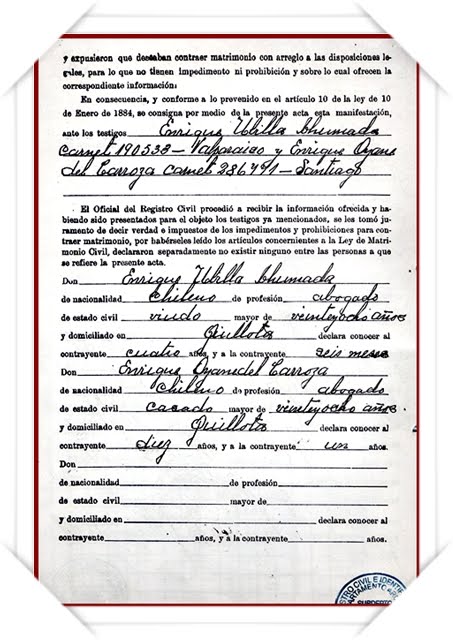 y expusieron que deseaban contraer matrimonio con arreglo a las disposiciones le-
gales, para lo que no tienen impedimento ni prohibición y sobre lo cual ofrecen la
correspondiente información:
En consecuencia, y conforme a lo prevenido en el artículo 10 de la ley de 10
de Enero de 1884, se consigna por medio de la presente acta esta manifestación,
ante los testigos Enrique Ubilla Ahumada
Carnet 190533 - Valparaiso y Enrique Oyane
del Carroza Carnet 286491 - Santiago
El Oficial del Registro Civil procedió a recibir la información ofrecida y ha-
biendo sido presentados para el objeto los testigos ya mencionados, se les tomó ju-
ramento de decir verdad e impuestos de los impedimentos y prohibiciones para con-
traer matrimonio, por habérseles leído los artículos concernientes a la Ley de Matri-
monio Civil, declararon separadamente no existir ninguno entre las personas a que
se refiere la presente acta.
Don Enrique Ubilla Ahumada
de nacionalidad Chileno de profesión abogado
de estado civil viudo mayor de veintyocho años
y domiciliado en Quillota declara conocer al
contrayente cuatro años, y a la contrayente seis meses
Don Enrique Oyanedel Carroza
de nacionalidad Chileno de profesión abogado
de estado civil casado mayor de veintyocho años.
y domiciliado en Quillota declara conocer al
contrayente diez años, y a la contrayente un años.
Don
de nacionalidad de profesión
de estado civil mayor de
y domiciliado en declara conocer al
contrayente años, y a la contrayente años.
STRO CIVIL E IDENTIFI
ARTAMENTO